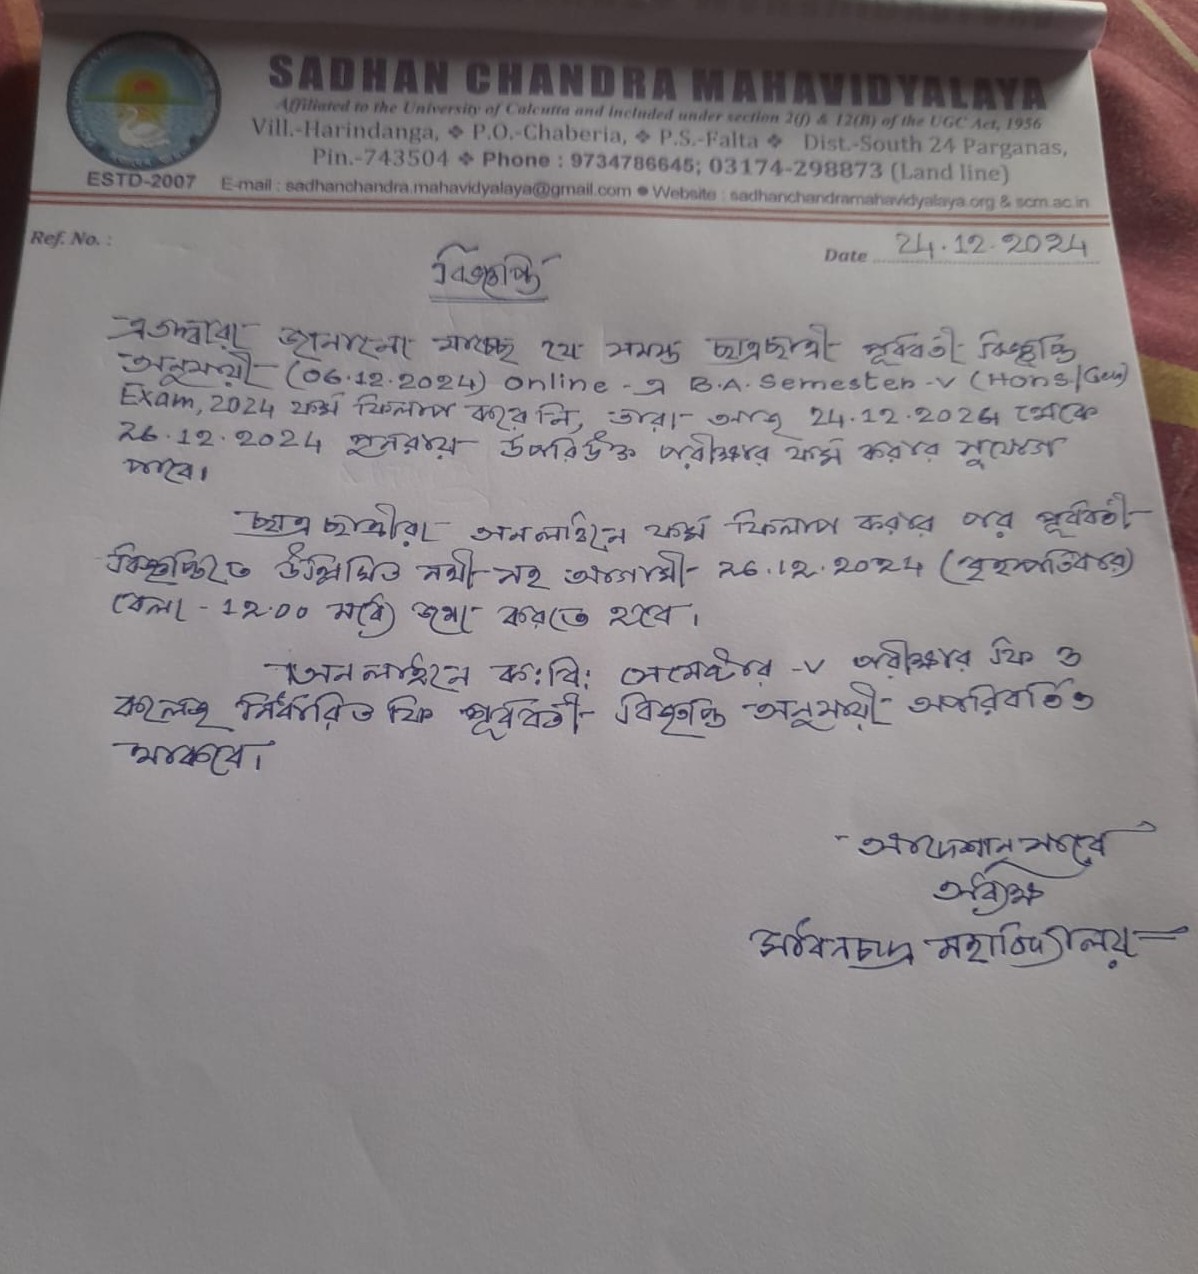 SADHAN CHANDRA MAHAVIDYALAYA
Affiliated to the University of Calcutta and included under section 2(f) & 12(B) of the UGC Act, 1956
Vill.-Harindanga, ❖ P.O.-Chaberia, ❖ P.S.-Falta ❖ Dist.-South 24 Parganas,
Pin.-743504 ❖ Phone : 9734786645; 03174-298873 (Land line)
ESTD-2007 E-mail : sadhanchandra.mahavidyalaya@gmail.com ● Website : sadhanchandramahavidyalaya.org & scm.ac.in
Ref. No. :
Date 24.12.2024
বিজ্ঞপ্তি
এতদ্বারা জানানো যাচ্ছে যে সমস্ত ছাত্রছাত্রী পূর্ববর্তী বিজ্ঞপ্তি
অনুযায়ী (06.12.2024) online-এ B.A. Semester-V (Hons/Gen)
Exam, 2024 ফর্ম ফিলাপ করেনি, তারা আজ 24.12.2024 থেকে
26.12.2024 পুনরায় উপরিউক্ত পরীক্ষার ফর্ম করার সুযোগ
পাবে।
ছাত্রছাত্রীরা অনলাইনে ফর্ম ফিলাপ করার পর পূর্ববর্তী
বিজ্ঞপ্তিতে উল্লিখিত নথী সহ আগামী 26.12.2024 (বৃহস্পতিবার)
বেলা - 12.00 মধ্যে জমা করতে হবে।
অনলাইনে ক:বি: সেমেস্টার -V পরীক্ষার ফি ও
কলেজ নির্ধারিত ফি পূর্ববর্তী বিজ্ঞপ্তি অনুযায়ী অপরিবর্তিত
থাকবে।
আদেশানুসারে
অধ্যক্ষ
সাধনচন্দ্র মহাবিদ্যালয়